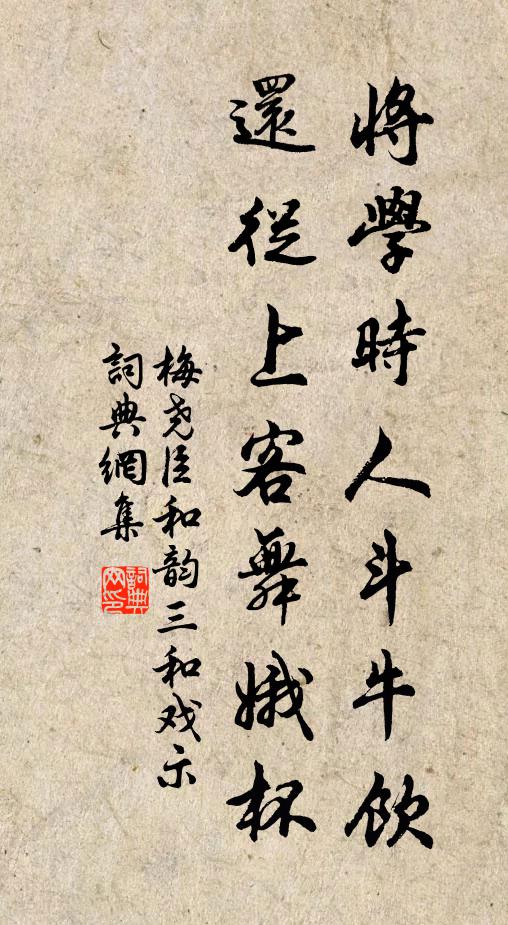 將學時人斗牛飲
還從上客舞娥杯
梅尧臣和韵三和戏示
詞典網集
詞典網印